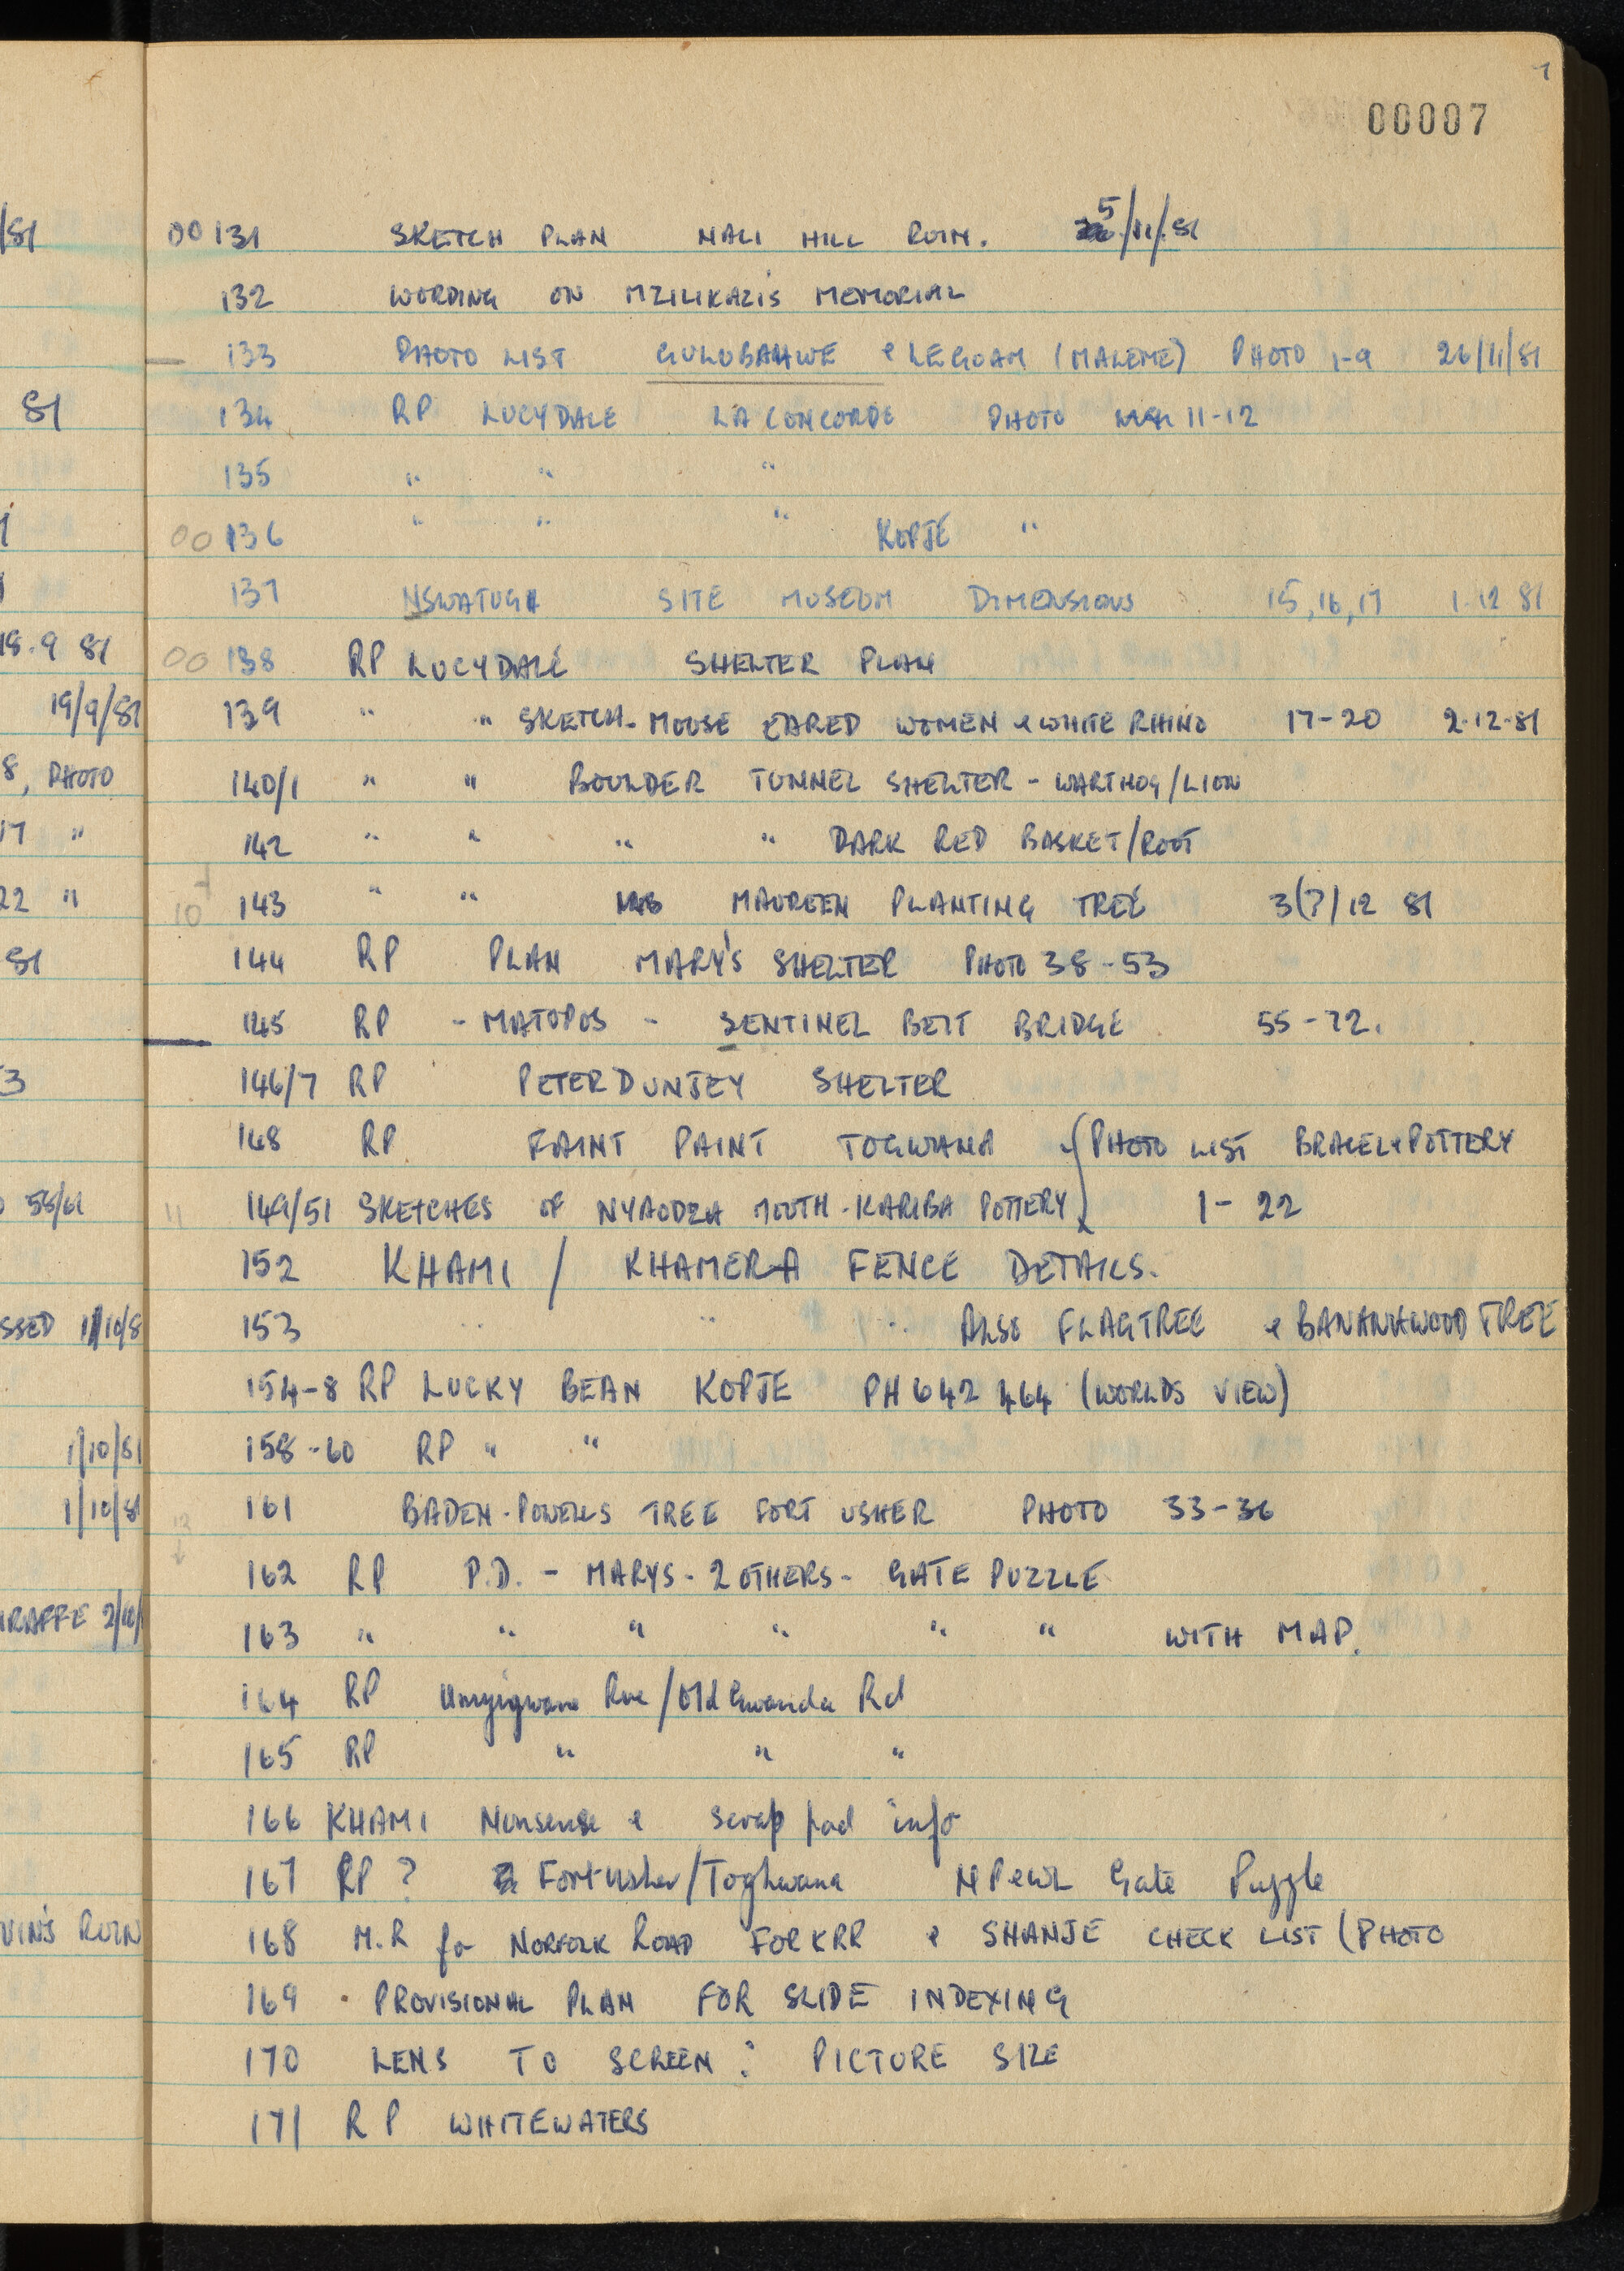 7
00007
00131 SKETCH PLAN NALI HILL RUIN. 5/11/81
132 WORDING ON MZILIKAZIS MEMORIAL
133 PHOTO LIST GULUBAHWE & LEGOAM (MALEME) PHOTO 1-9 26/11/81
134 RP LUCYDALE LA CONCORDE PHOTO 11-12
135 " " "
00 136 " " " KOPJE "
137 NSWATUGI SITE MUSEUM DIMENSIONS 15,16,17 1-12 81
00 138 RP LUCYDALE SHELTER PLAN
139 " " SKETCH-MOUSE EARED WOMEN & WHITE RHINO 17-20 2-12-81
140/1 " " BOULDER TUNNEL SHELTER - WARTHOG/LION
142 " " " " DARK RED BASKET/ROOT
10 143 " " MAUREEN PLANTING TREE 3(?)/12 81
144 RP PLAN MARY'S SHELTER PHOTO 38-53
145 RP - MATOPOS - SENTINEL BEIT BRIDGE 55-72.
146/7 RP PETER DUNJEY SHELTER
148 RP FAINT PAINT TOGWANA { PHOTO LIST BRACEL & POTTERY
11 149/51 SKETCHES OF NYAODZA MOUTH-KARIBA POTTERY } 1- 22
152 KHAMI / KHAMERA FENCE DETAILS.
153 " " " ALSO FLAGTREE & BANANAWOOD TREE
154-8 RP LUCKY BEAN KOPJE PH 642 464 (WORLDS VIEW)
158-60 RP " "
161 BADEN-POWELLS TREE FORT USHER PHOTO 33-36
162 RP P.D. - MARYS - 2 OTHERS - GATE PUZZLE
163 " " " " " " WITH MAP.
164 RP Umzigwane Rve/Old Gwanda Rd
165 RP " " "
166 KHAMI Nonsense & scrap pad info
167 RP? Fort Usher/Toghwana NPEWL Gate Puzzle
168 M.R for NORFOLK ROAD FOR KRR & SHANJE CHECK LIST (PHOTO
169 . PROVISIONAL PLAN FOR SLIDE INDEXING
170 LENS TO SCREEN : PICTURE SIZE
171 RP WHITEWATERS
/81
81
18.9 81
19/9/81
8, PHOTO
17 "
22 "
81
3
55/61
SSED 1/10/8
1/10/81
1/10/81
IRAFFE 2/10/
VIN'S RUIN